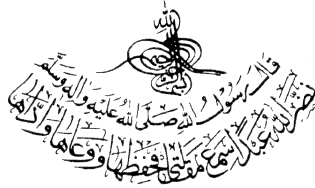 بسم الله الرحمن الرحيم
قال رسول الله صلى الله عليه وآله وسلم
نضر الله عبدا سمع مقالتي فحفظها ووعاها وأداها